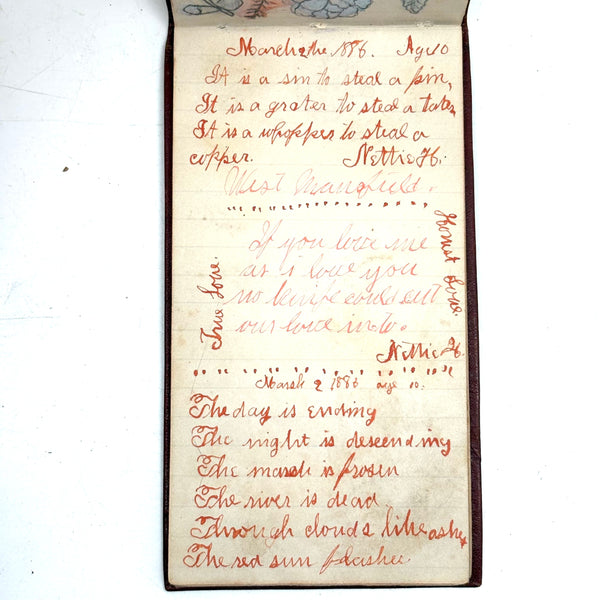 March 2 the 1886. Age 10
It is a sin to steal a pin,
It is a grater to steal a tater,
It is a whopper to steal a
copper. Nettie H.
West Mansfield.
If you love me
as i love you
no knife could cut
our love in to.
True Love.
Honest Love.
Nettie H.
March 2 1886 age 10.
The day is ending
The night is descending
The marsh is frosen
The river is dead
Through clouds like ashes
The red sun flashes